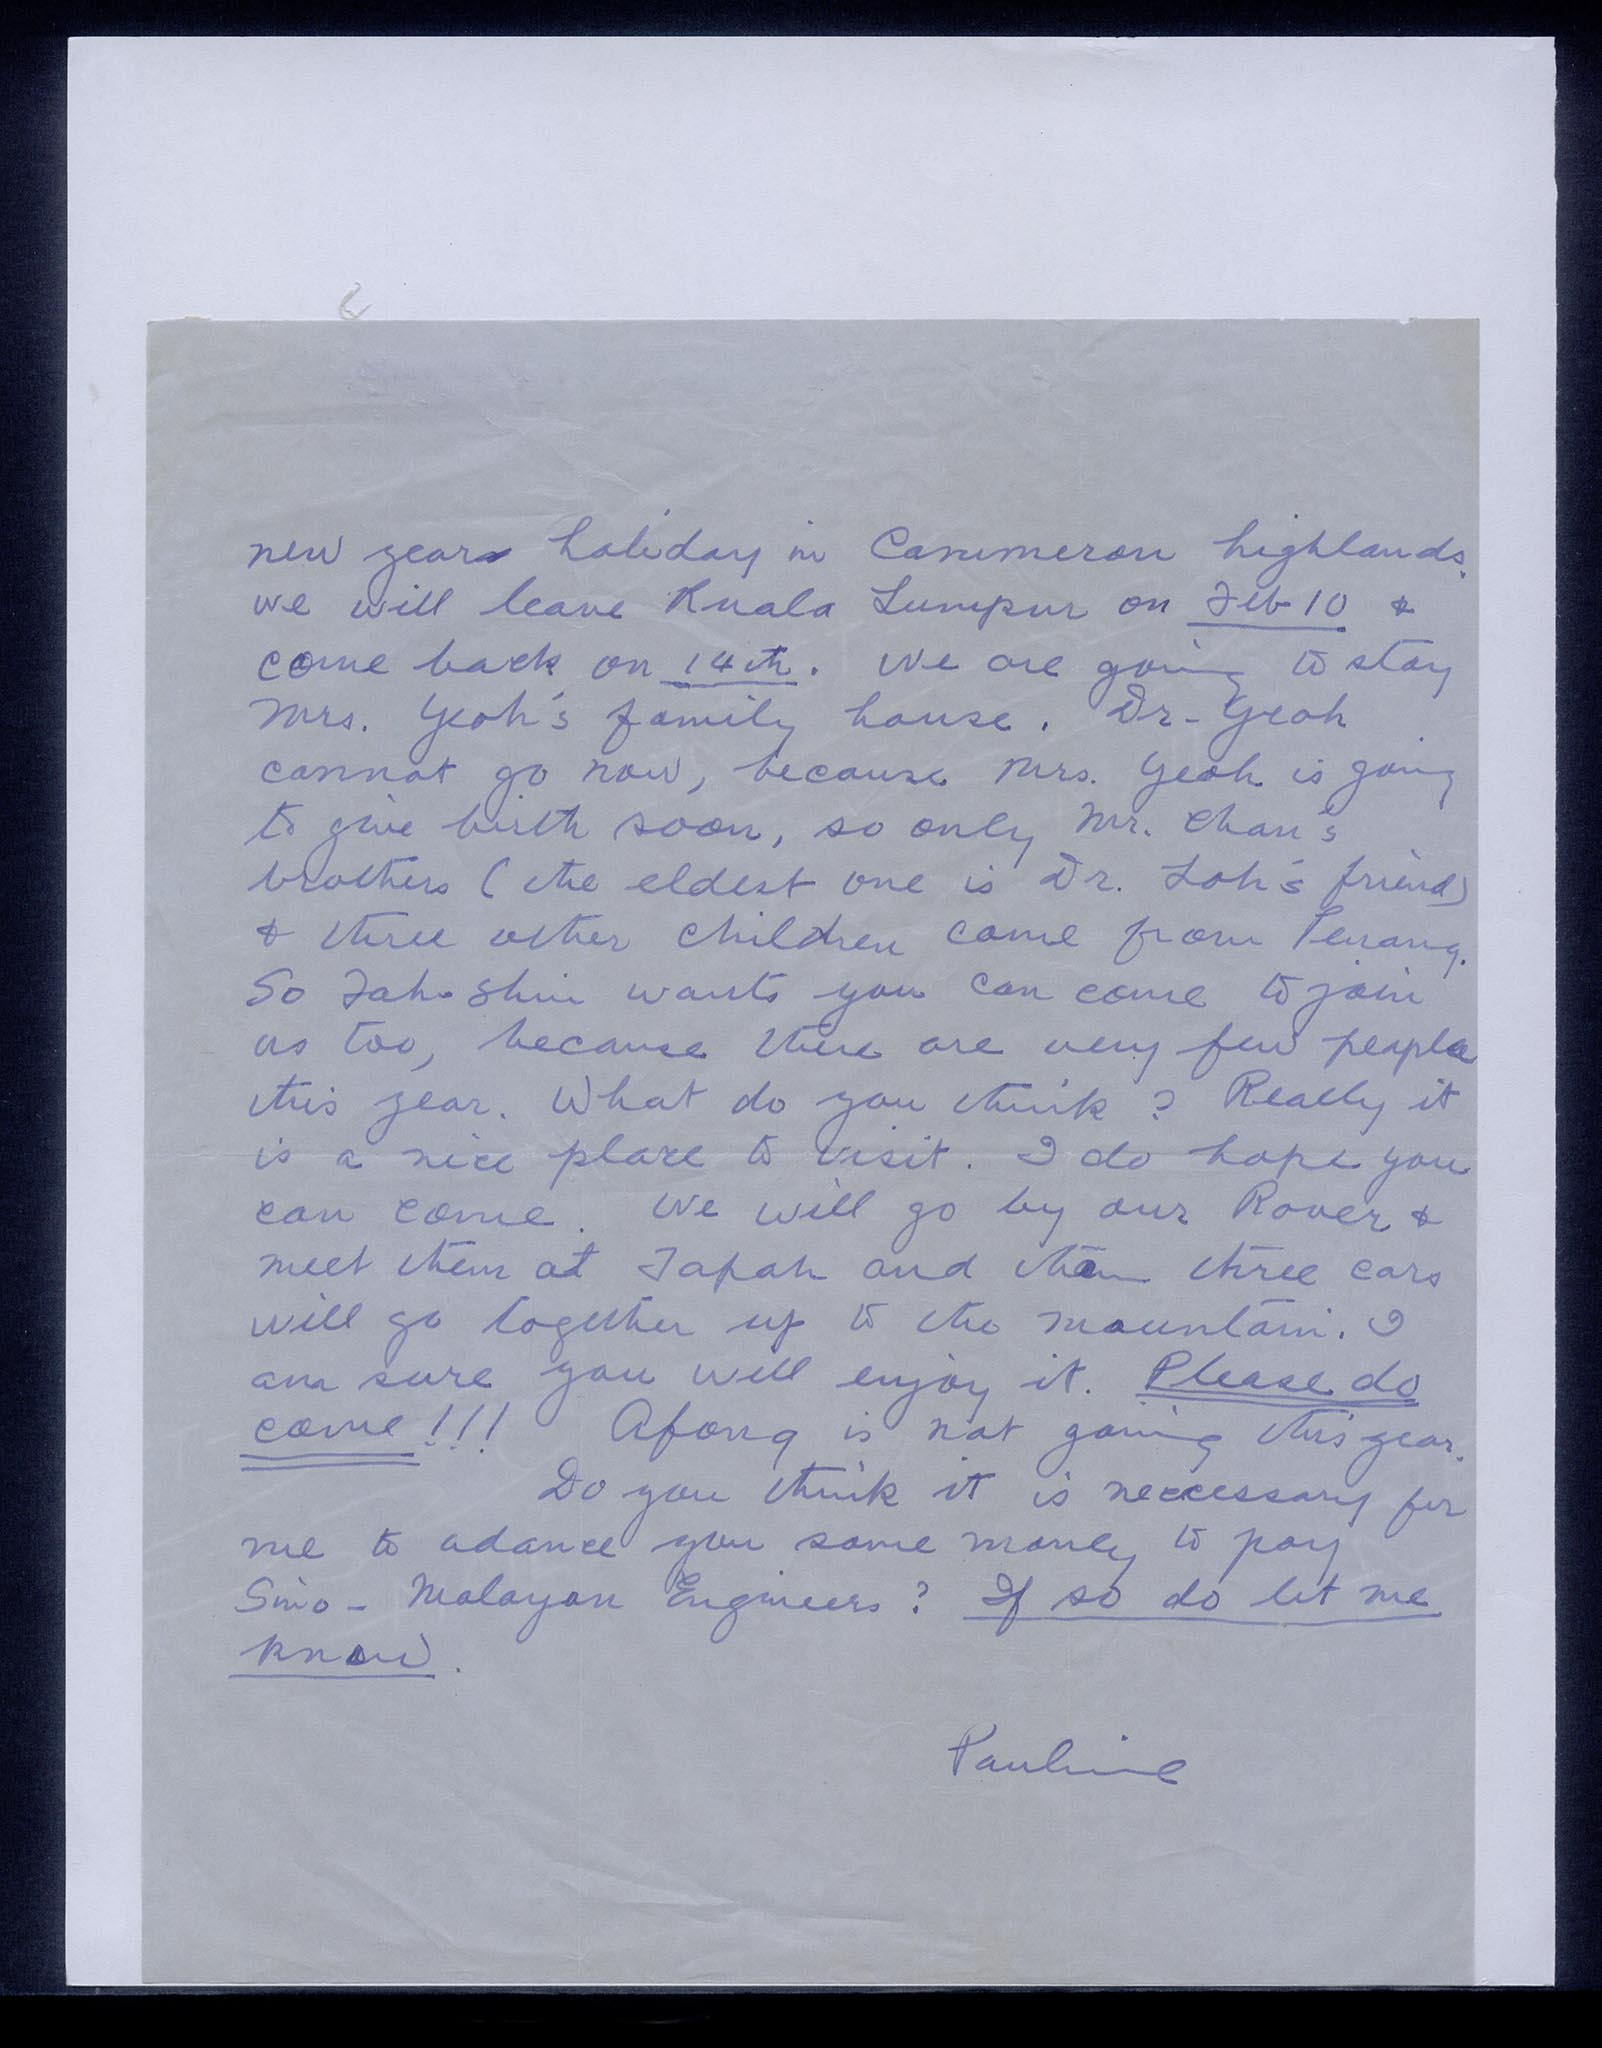 new years holiday in Cammeron highlands.
we will leave Kuala Lumpur on Feb 10 &
come back on 14th. We are going to stay
Mrs. Yeoh's family house. Dr. Yeoh
cannot go now, because Mrs. Yeoh is going
to give birth soon, so only Mr. Chan's
brothers (the eldest one is Dr. Loh's friend)
& three other children come from Penang.
So Fah-Shin wants you can come to join
us too, because there are very few people
this year. What do you think? Really it
is a nice place to visit. I do hope you
can come. We will go by our Rover &
meet them at Tapah and then three cars
will go together up to the mountain. I
am sure you will enjoy it. Please do
come!!! Afong is not going this year.
Do you think it is neccessary for
me to adance you some money to pay
Sino-Malayan Engineers? If so do let me
know.
Pauline